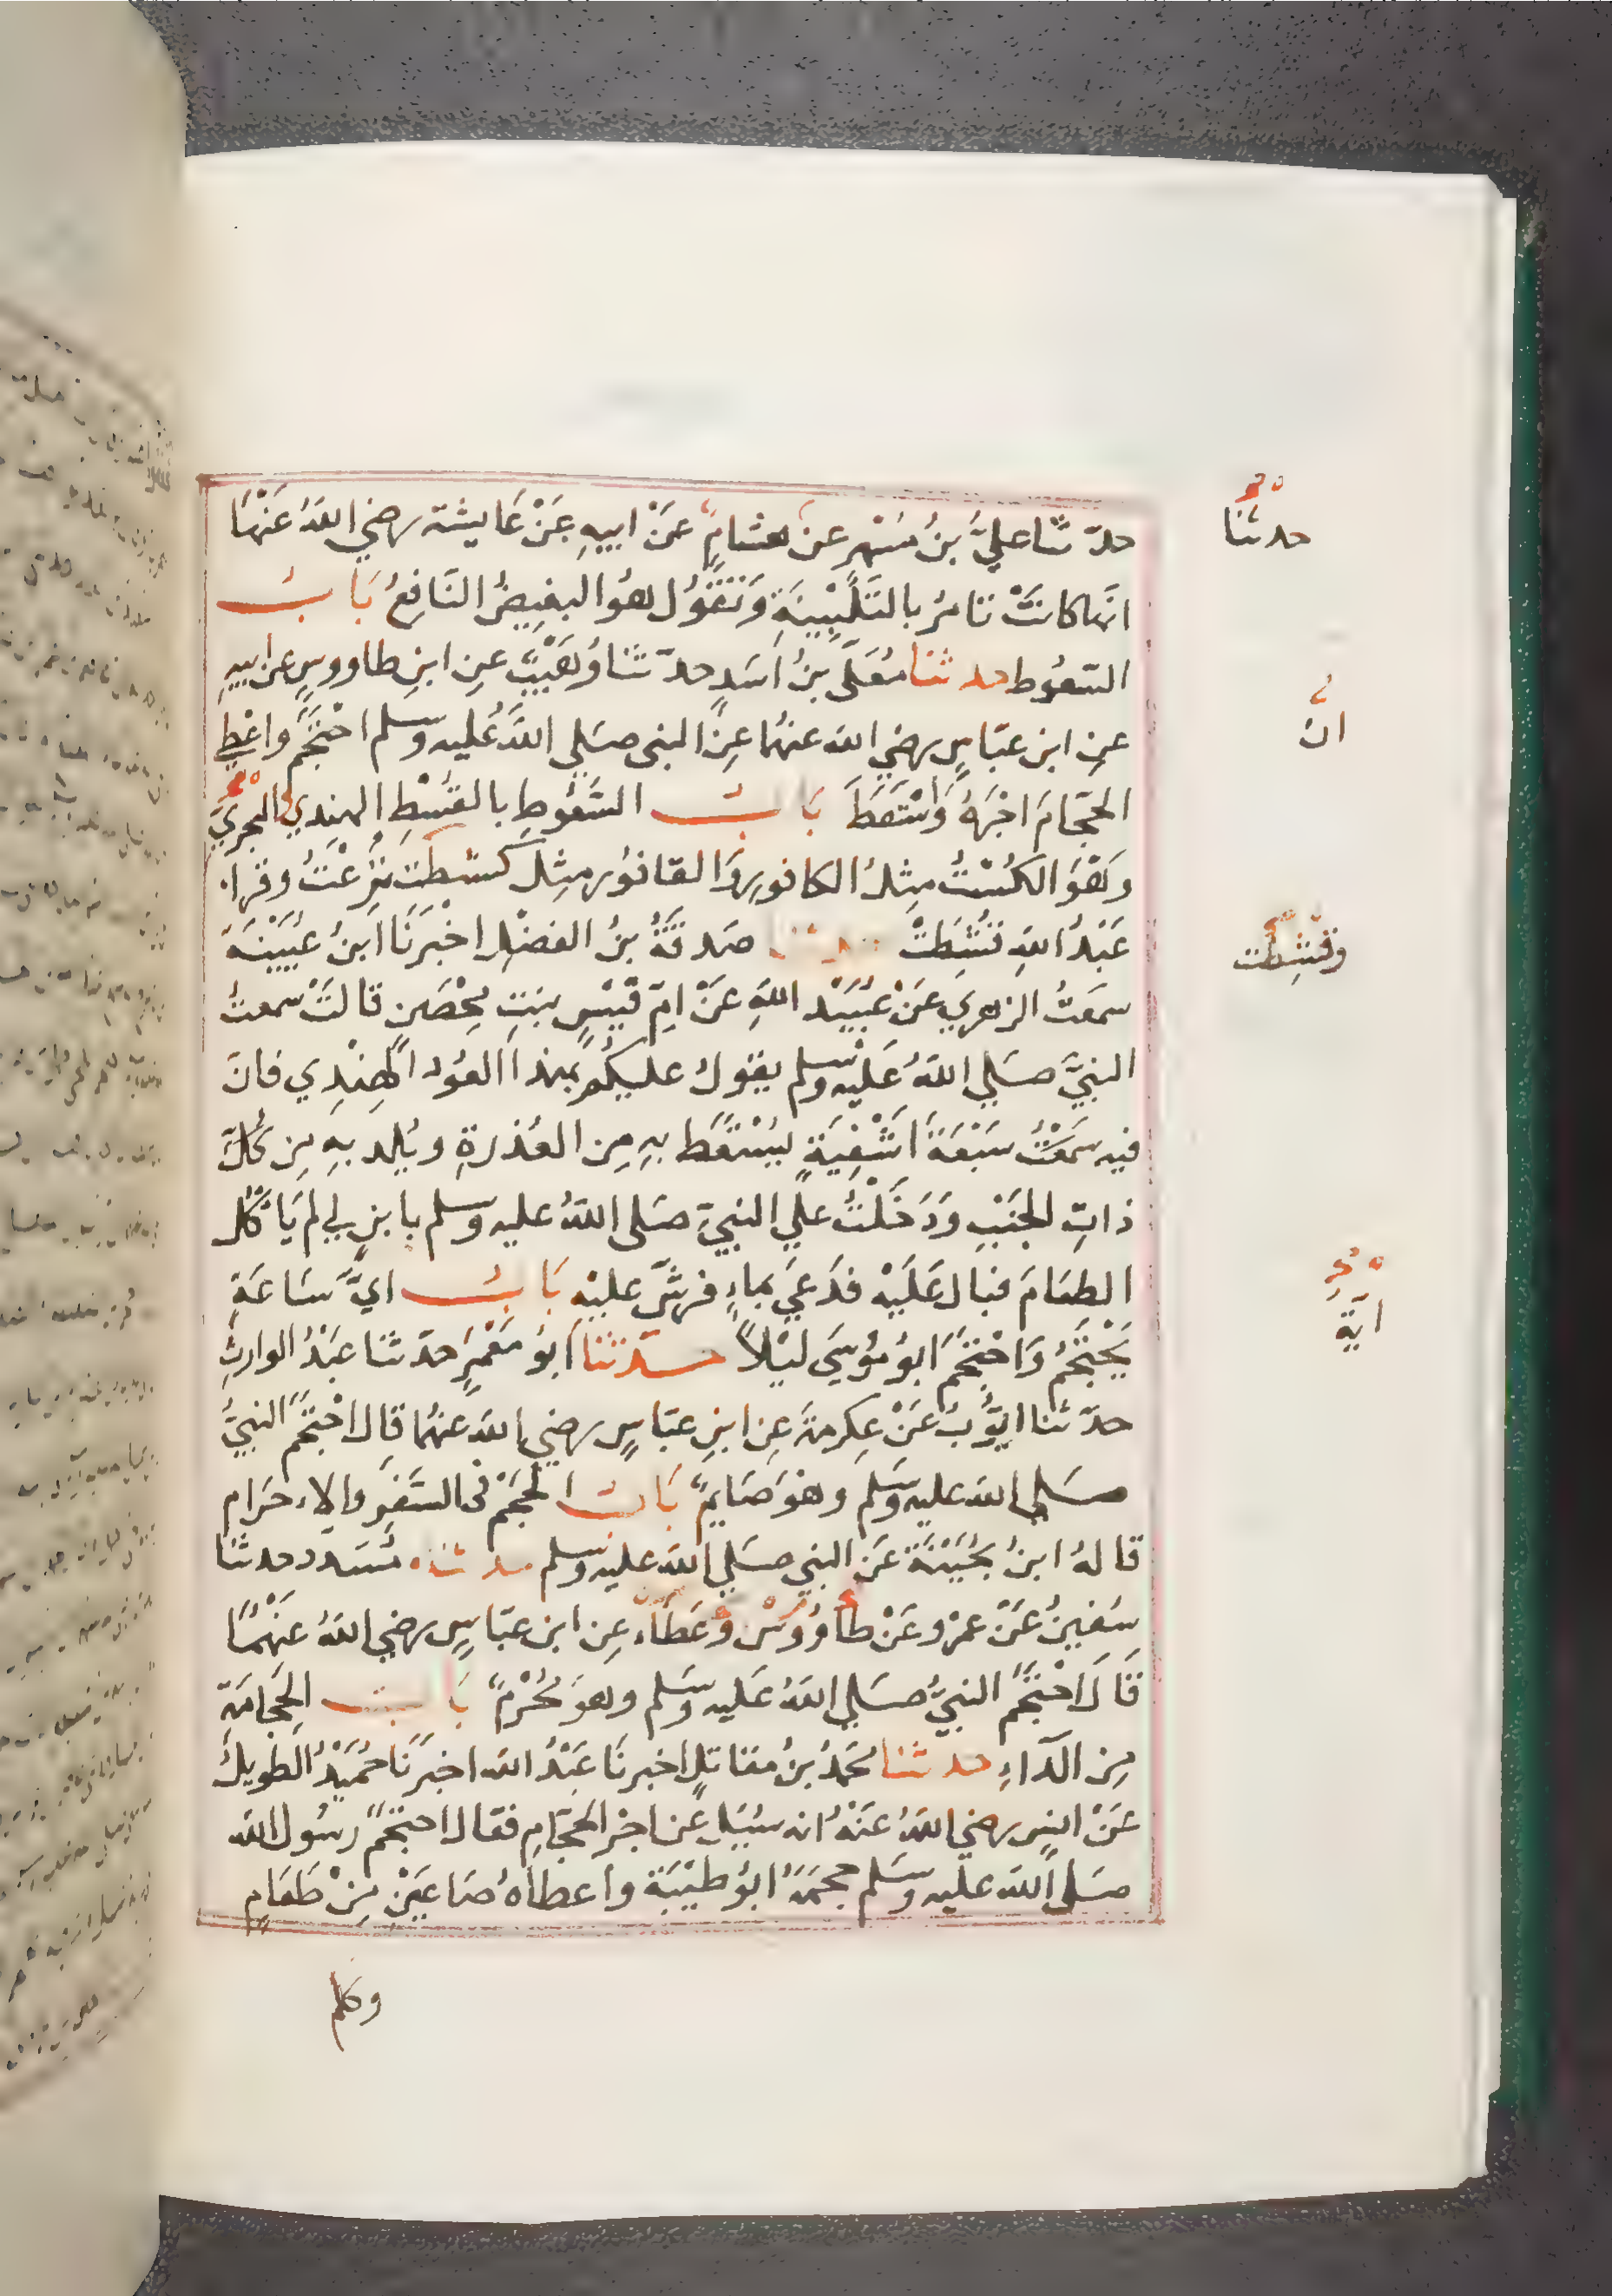 حدّثنا عليُّ بنُ مُسْهِرٍ عن هشامٍ عَنْ ابيهِ عَنْ عَايشة رضي اللهُ عَنْهَا
انّها كانَتْ تامُرُ بالتَلْبِيْنَةِ وَتَقُوْلُ هوُ البغِيضُ النَافِعُ بَابُ
السّعُوط حدثنا مُعَلَّى بنُ اَسَدٍ حدّثنا وُهَيْبٌ عنِ ابنِ طاووسٍ عن ابيهِ
عنِ ابن عبّاسٍ رضي الله عنهُما عنِ النبى صَلي اللهُ عَليه وسلم احْتَجَمَ واعْطي
الحجّامَ اجْرَهُ وَاسْتَعَطَ بَابُ السَّعُوطِ بالقُسْطِ الهِندي البحْريّ
وَهْوَ الكُسْتُ مِثلُ الكافورِ وَالقافوُر مِثل كشطَتِ نُزِعَتْ وقرا
عَبْدُ اللهِ قُشِطَتْ حدثنا صَدقَةُ بنُ الفضْلِ اخْبَرَنَا ابنُ عُيَيْنَةَ
سمَعتُ الزهريَ عَنْ عُبَيْد اللهِ عَنْ امِّ قَيْسٍ بنتِ مِحْصَنٍ قالَتْ سمعتُ
النبيَّ صَلي اللهُ عَليْه وسلم يقولُ عليكُم بهذا العُود الهِنْدِي فانّ
فيه سَبْعَةَ اَشْفِيَةٍ يُسْتعَط بِهِ مِن العُذرةِ ويُلد بهِ مِن
ذاتِ الجَنْبِ وَدَخَلْتُ علي النبيّ صَلى اللهُ عليه وسلم بابنٍ لي لم يَاكُل
الطعَامَ فبال عَلَيْه فدَعيَ بماءٍ فرشّ عليْه بَابُ ايَّ سَاعَةٍ
يَحْتجمُ وَاحْتجمَ ابوُ موُسَي ليْلاً حدّثنا ابوُ مَعْمَرٍ حدّثنا عَبْدُ الوارثِ
حدّثنا ايّوُبُ عَنْ عِكرمةَ عنِ ابنِ عبّاسٍ رضي الله عنهُما قال احْتجَمَ النبيُّ
صَلي الله عليه وسَلم وهْوَ صَايمٌ بَابُ الحجَمْ فى السَّفرِ والاءحرَام
قالهُ ابنُ بُحَيْنَةَ عَن النبي صَلي الله عليه وسلم حدثنا مُسَدد حدثنا
سُفينُ عَنْ عمْرو عَنْ طاووُسْ وَعَطَآء عنِ ابن عبّاسٍ رضي اللهُ عنهْمُا
قَالَ احْتَجَمَ النبيُّ صَلي اللهُ عَليه وسَلم وهوَ مُحْرمٌ بَابُ الحِجَامَة
مِن الدّآءِ حدثنا محمدُ بنُ مقاتلٍ اخبرنَا عَبْدُ الله اخبَرَنَا حُمَيْدُ الطويلُ
عَنْ انسٍ رضي اللهُ عَنْهُ انه سُئِل عن اجْرِ الحجّامِ فقال احتجَمَ رسُول الله
صَلي الله عليه وسَلم حجَمَهُ ابوُ طَيْبَة واعطاهُ صَاعيْنِ مِنْ طَعَامٍ
وكلم
حدثنا
انّ
وقُشِطَت
ايّةِ